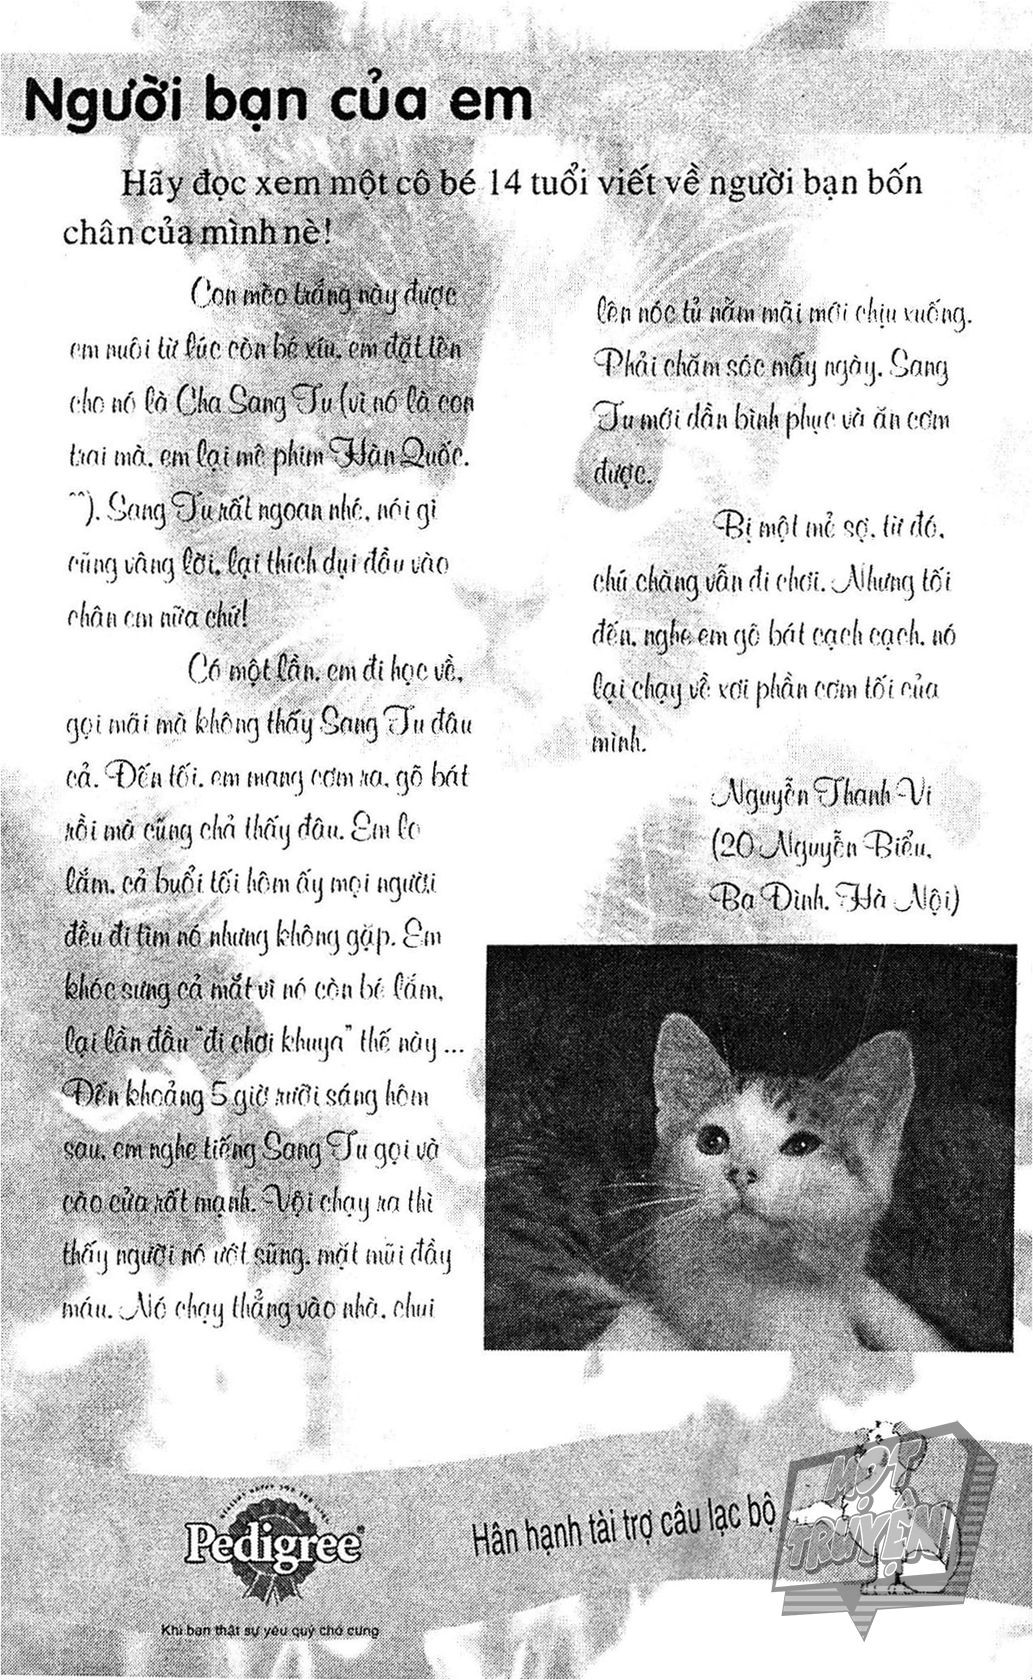 Người bạn của em
Hãy đọc xem một cô bé 14 tuổi viết về người bạn bốn
chân của mình nè!
Con mèo trắng này được
em nuôi từ lúc còn bé xíu, em đặt tên
cho nó là Cha Sang Tu (vì nó là con
trai mà, em lại mê phim Hàn Quốc.
^^). Sang Tu rất ngoan nhé, nói gì
cũng vâng lời, lại thích dụi đầu vào
chân em nữa chứ!
Có một lần, em đi học về,
gọi mãi mà không thấy Sang Tu đâu
cả. Đến tối, em mang cơm ra, gõ bát
rồi mà cũng chả thấy đâu. Em lo
lắm, cả buổi tối hôm ấy mọi người
đều đi tìm nó nhưng không gặp. Em
khóc sưng cả mắt vì nó còn bé lắm,
lại lần đầu "đi chơi khuya" thế này ...
Đến khoảng 5 giờ rưỡi sáng hôm
sau, em nghe tiếng Sang Tu gọi và
cào cửa rất mạnh. Vội chạy ra thì
thấy người nó ướt sũng, mặt mũi đầy
máu. Nó chạy thẳng vào nhà, chui
lên nóc tủ nằm mãi mới chịu xuống.
Phải chăm sóc mấy ngày, Sang
Tu mới dần bình phục và ăn cơm
được.
Bị một mẻ sợ, từ đó,
chú chàng vẫn đi chơi. Nhưng tối
đến, nghe em gõ bát cạch cạch, nó
lại chạy về xơi phần cơm tối của
mình.
Nguyễn Thanh Vi
(20 Nguyễn Biểu,
Ba Đình, Hà Nội)
Pedigree
Khi bạn thật sự yêu quý chó cưng
Hân hạnh tài trợ câu lạc bộ
MỌT
TRUYỆN